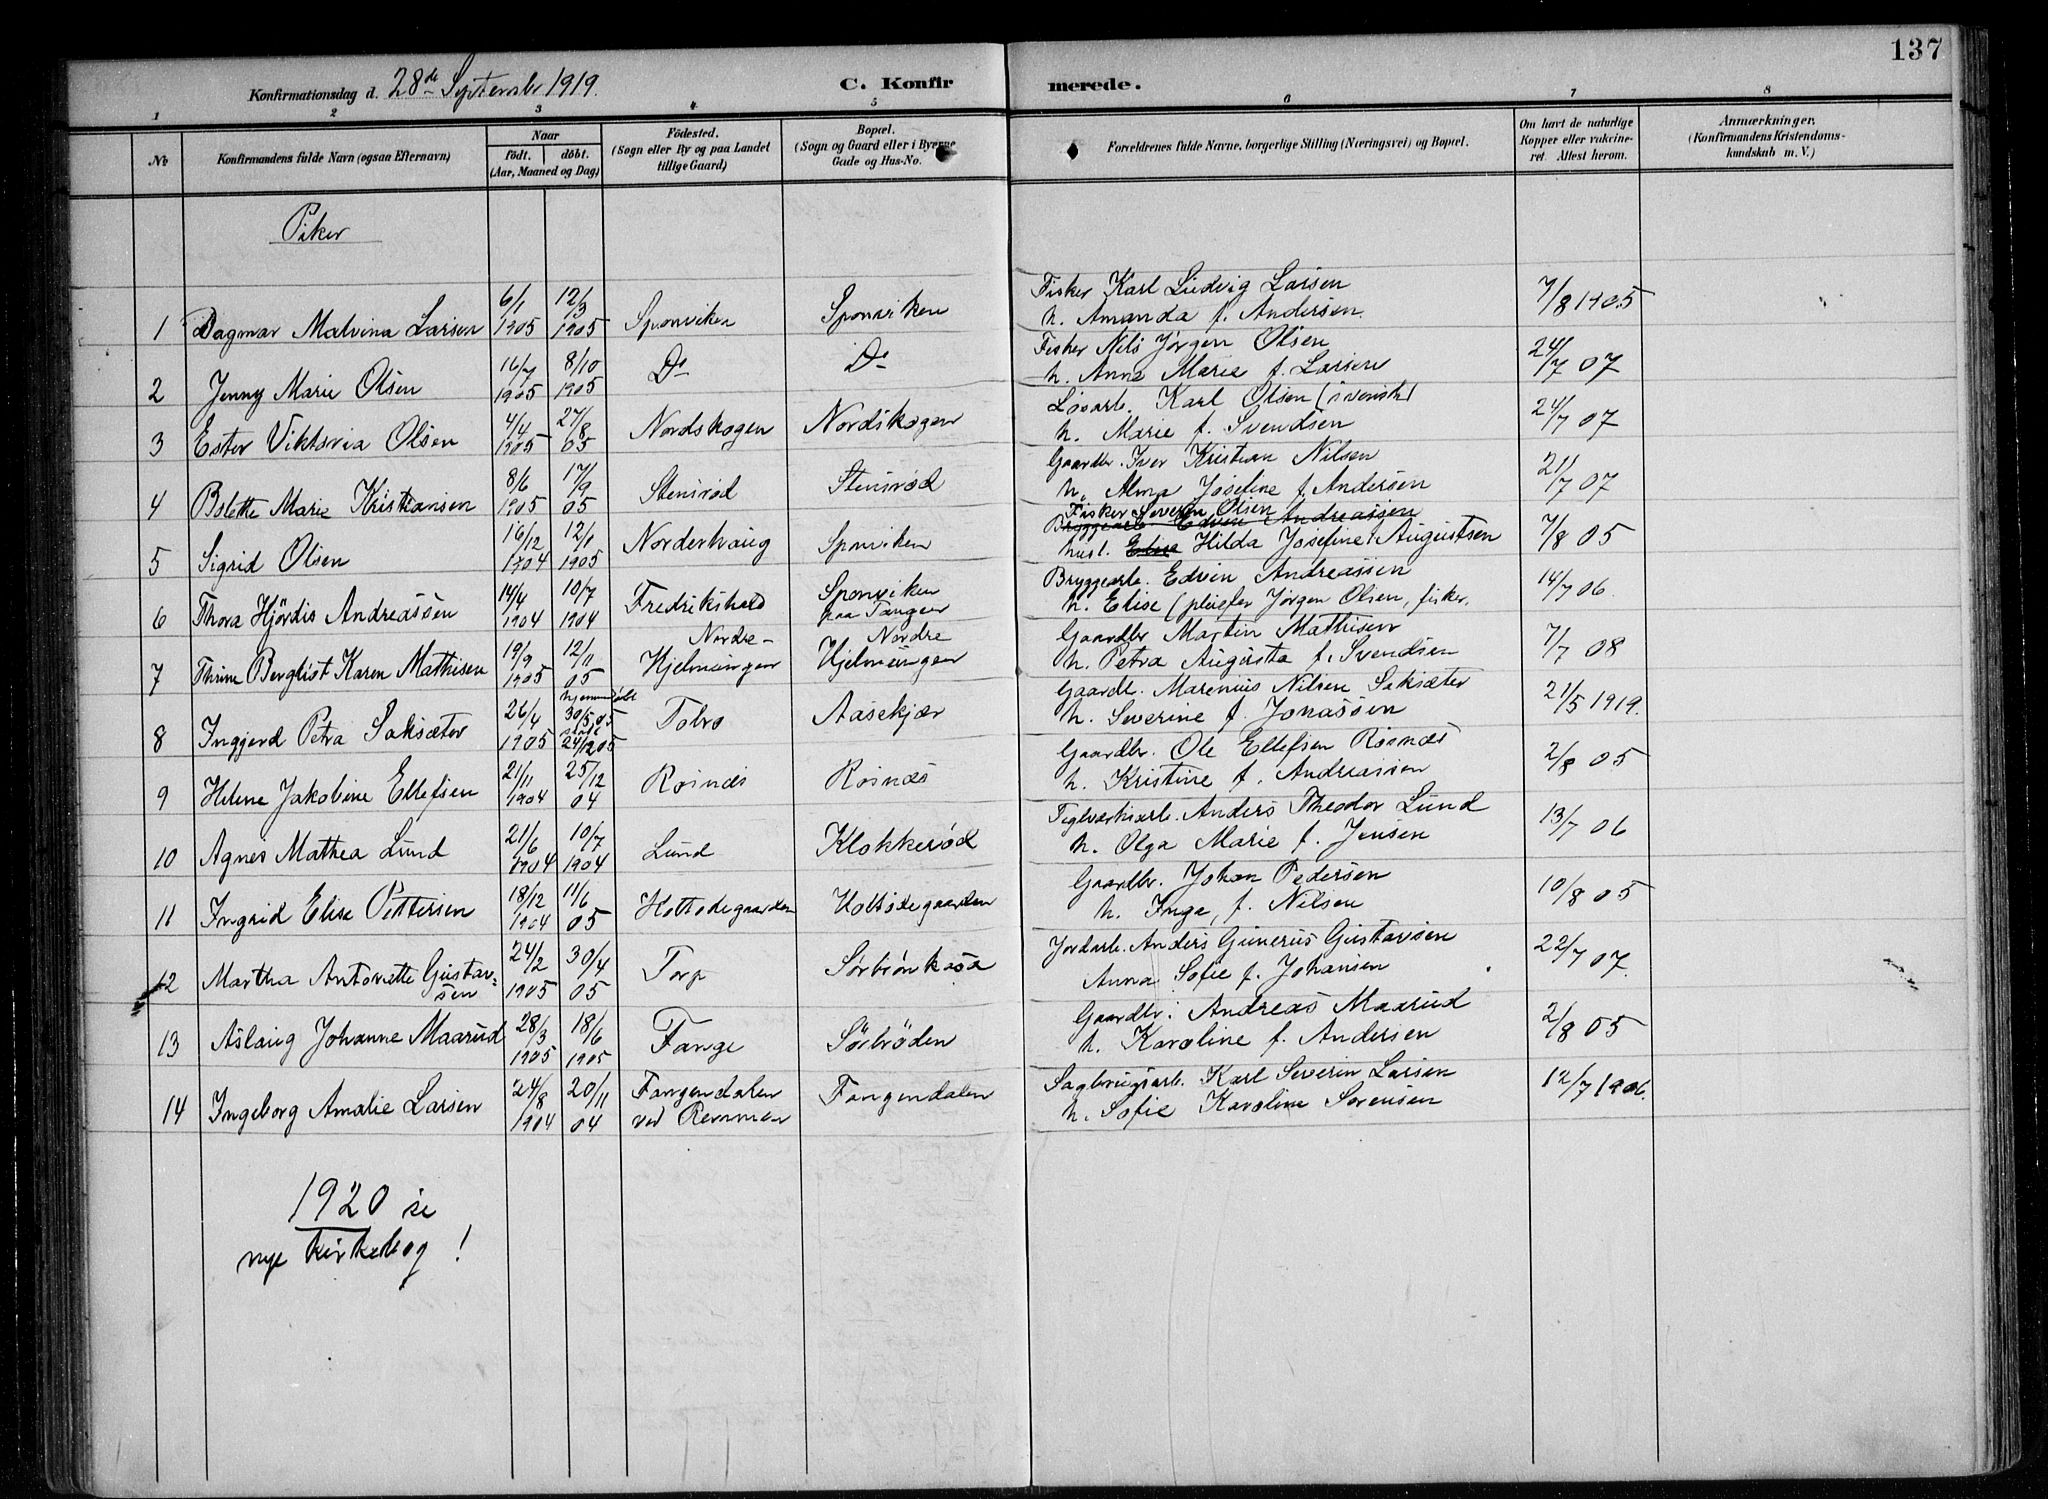 137
Konfirmationsdag d. 28de September 1919. C. Konfir merede.
1 2 3 4 5 6 7 8
No Konfirmandens fulde Navn (ogsaa Efternavn) Naar födt. döbt. (Aar, Maaned og Dag) Födested. (Sogn eller By og paa Landet tillige Gaard) Bopæl. (Sogn og Gaard eller i Byerne Gade og Hus-No. Forældrenes fulde Navne, borgerlige Stilling (Næringsvei) og Bopæl. Om havt de naturlige Kopper eller vakcineret Attest herom. Anmærkninger. (Konfirmandens Kristendomskundskab m. V.)
Piker
1 Dagmar Malvina Larsen 6/1 1905 12/3 1905 Sponviken Sponviken Fisker Karl Ludvig Larsen h. Amanda f. Andersen. 7/8 1905
2 Jenny Marie Olsen 16/7 1905 8/10 1905 Do Do Fisker Nils Jørgen Olsen h. Anna Marie f. Larsen 24/7 07
3 Ester Viktoria Olsen 4/4 1905 27/8 05 Nordskogen Nordskogen Løsarb. Karl Olsen (svensk) h. Marie f. Svendsen 24/7 07
4 Bolette Marie Kristiansen 8/6 1905 17/9 05 Stensrød Stensrød Gaardbr. Iver Kristian Nilsen h. Alma Josefine f. Andersen 21/7 07
5 Sigrid Olsen 16/12 1904 12/1 1905 Norderhaug Sponviken Fisker Severin Olsen Bryggearb. Edvin Andreassen hust. Elise Hilda Josefine f. Augustsen 7/8 05
6 Thora Hjördis Andreassen 14/4 1904 10/7 1904 Fredrikshald Sponviken paa Tangen Bryggearb. Edvin Andreassen h. Elise (pleiefar Jørgen Olsen, fisker. 14/7 06.
7 Thrine Bergliot Karen Mathisen 19/9 1905 12/11 05 Nordre- Hjelmungen Nordre Hjelmungen Gaardbr Martin Mathisen h. Petra Augusta f. Svendsen 7/7 08
8 Ingjerd Petra Saksæter 26/4 1905 hjemmedøbt 30/5 05 24/12 05 Tolvo Aasekjær Gaardb. Marenius Nilsen Saksæter h. Severine f. Jonassen 21/5 1919.
9 Helene Jakobine Ellefsen 21/11 1904 25/12 04 Røsnæs Røsnæs Gaardbr. Ole Ellefsen Røsnæs h. Kristine f. Andreassen 2/8 05
10 Agnes Mathea Lund 21/6 1904 10/7 1904 Lund Klokkerød Teglværksarb. Anders Theodor Lund h. Olga Marie f. Jensen 13/7 06
11 Ingrid Elise Pettersen 18/12 1904 11/6 05 Holtodegaarden Holtodegaarden Gaardbr. Johan Pedersen h. Inga, f. Nilsen 10/8 05
12 Martha Antonette Gustavsen 24/2 1905 30/4 05 Torp Sørbrönkasa Jordarb. Anders Gunerus Gustavsen Anna Sofie f. Johansen 22/7 07.
13 Aslaug Johanne Maarud 28/3 1905 18/6 1905 Tange Sörbröden Gaardbr. Andreas Maarud h. Karoline f. Andersen 2/8 05
14 Ingeborg Amalie Larsen 24/8 1904 20/11 04 Tangendalen ved Remmen Tangendalen Sagbrugsarb. Karl Severin Larsen h. Sofie Karoline Sørensen 12/7 1906.
1920 se
nye kirkebog!